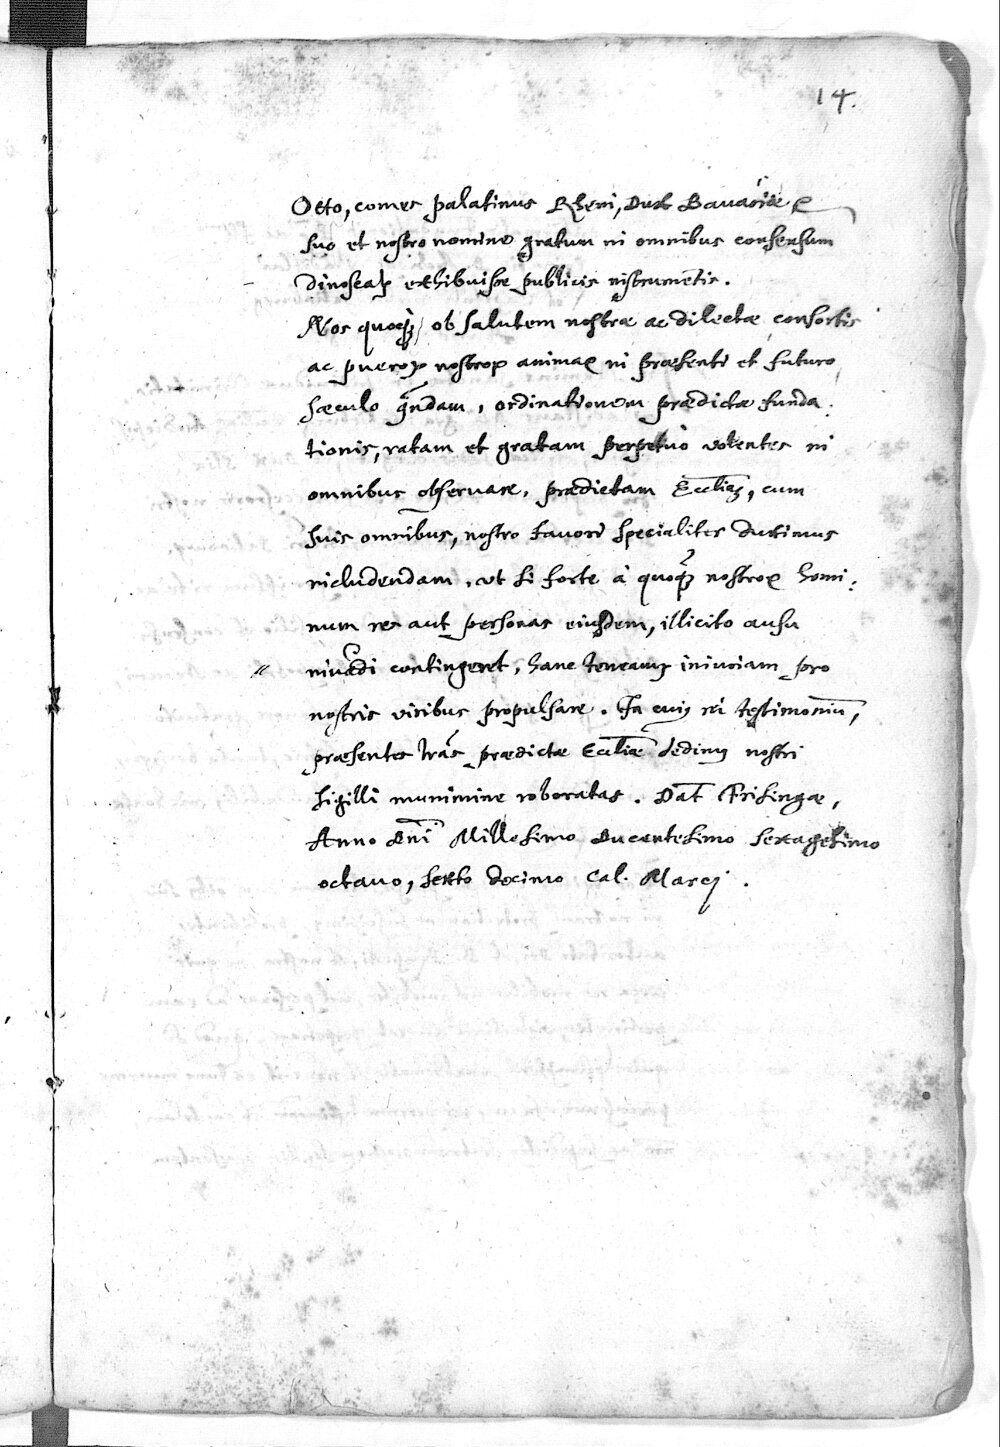 14.
Otto, comes palatinus Rheni, Dux Bavariæ
suo et nostro nomine gratum in omnibus consensum
dinoscat exhibuisse publicis instrumentis.
Nos quoq, ob salutem nostræ ac dilectæ consortis
ac pueroꝝ nostroꝝ animaꝝ in præsenti et futuro
sæculo ordinationem prædictæ funda-
tionis, ratam et gratam perpetuo volentes in
omnibus observare, prædictam Eccliaꝫ, cum
suis omnibus, nostro favori specialiter duximus
includendam, ut si forte à quoqꝫ nostroꝝ homi-
num res aut personas eiusdem, illicito ausu
invadi contingeret, hanc teneamꝰ iniuriam pro
nostris viribus propulsare. In cuiꝰ rei testimoniū,
præsentes lras prædictæ Eccliæ dedimꝰ nostri
sigilli munimine roboratas. Dat Frisingæ,
Anno Dni Millesimo Ducentesimo sexagesimo
octavo, sexto decimo Cal. Marcij.